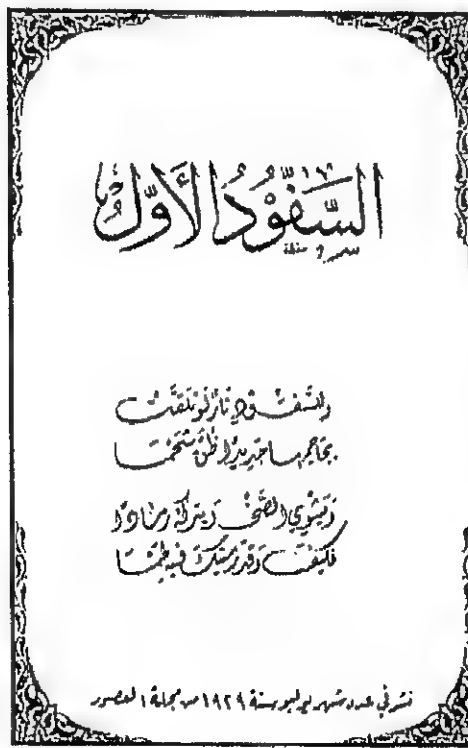 السَّفُّوْدُ الأَوَّلُ
وللسَّفُّودِ نارٌ لو تلقَّتْ
بجاحِمِها حديدًا ظُنَّ شَحْمَا
ويَشْوِي الصَّخْرَ يتركُهُ رمادًا
فكيفَ وقد رميتُكَ فيهِ لَحْمَا
نشر في عدد شهر يوليو سنة ١٩٢٩ من مجلة العصور